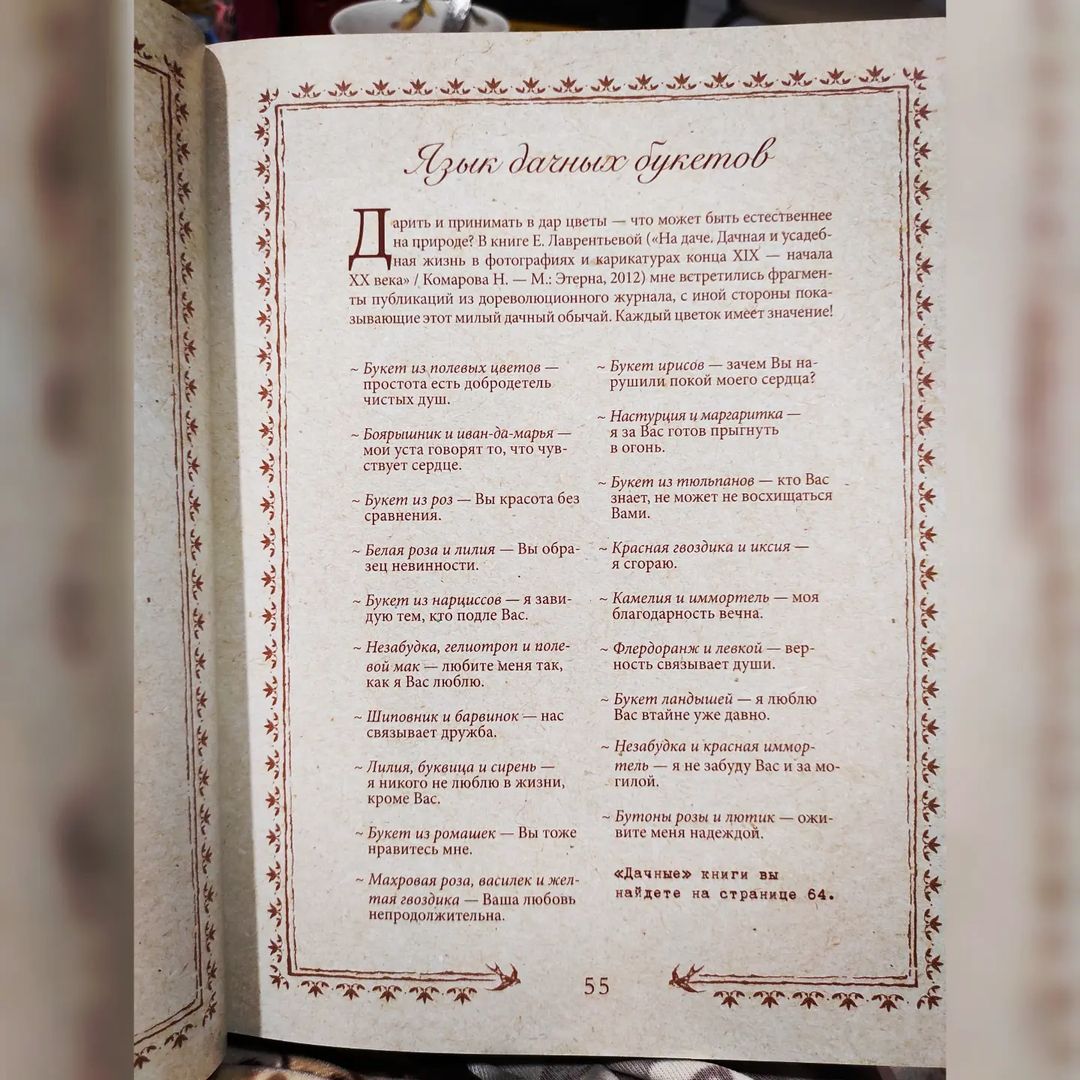 Язык дачных букетов
Дарить и принимать в дар цветы — что может быть естественнее
на природе? В книге Е. Лаврентьевой («На даче. Дачная и усадеб-
ная жизнь в фотографиях и карикатурах конца XIX — начала
XX века» / Комарова Н. — М.: Этерна, 2012) мне встретились фрагмен-
ты публикаций из дореволюционного журнала, с иной стороны пока-
зывающие этот милый дачный обычай. Каждый цветок имеет значение!
~ Букет из полевых цветов —
простота есть добродетель
чистых душ.
~ Боярышник и иван-да-марья —
мои уста говорят то, что чув-
ствует сердце.
~ Букет из роз — Вы красота без
сравнения.
~ Белая роза и лилия — Вы обра-
зец невинности.
~ Букет из нарциссов — я зави-
дую тем, кто подле Вас.
~ Незабудка, гелиотроп и поле-
вой мак — любите меня так,
как я Вас люблю.
~ Шиповник и барвинок — нас
связывает дружба.
~ Лилия, буквица и сирень —
я никого не люблю в жизни,
кроме Вас.
~ Букет из ромашек — Вы тоже
нравитесь мне.
~ Махровая роза, василек и жел-
тая гвоздика — Ваша любовь
непродолжительна.
~ Букет ирисов — зачем Вы на-
рушили покой моего сердца?
~ Настурция и маргаритка —
я за Вас готов прыгнуть
в огонь.
~ Букет из тюльпанов — кто Вас
знает, не может не восхищаться
Вами.
~ Красная гвоздика и иксия —
я сгораю.
~ Камелия и иммортель — моя
благодарность вечна.
~ Флердоранж и левкой — вер-
ность связывает души.
~ Букет ландышей — я люблю
Вас втайне уже давно.
~ Незабудка и красная иммор-
тель — я не забуду Вас и за мо-
гилой.
~ Бутоны розы и лютик — ожи-
вите меня надеждой.
«Дачные» книги вы
найдете на странице 64.
55